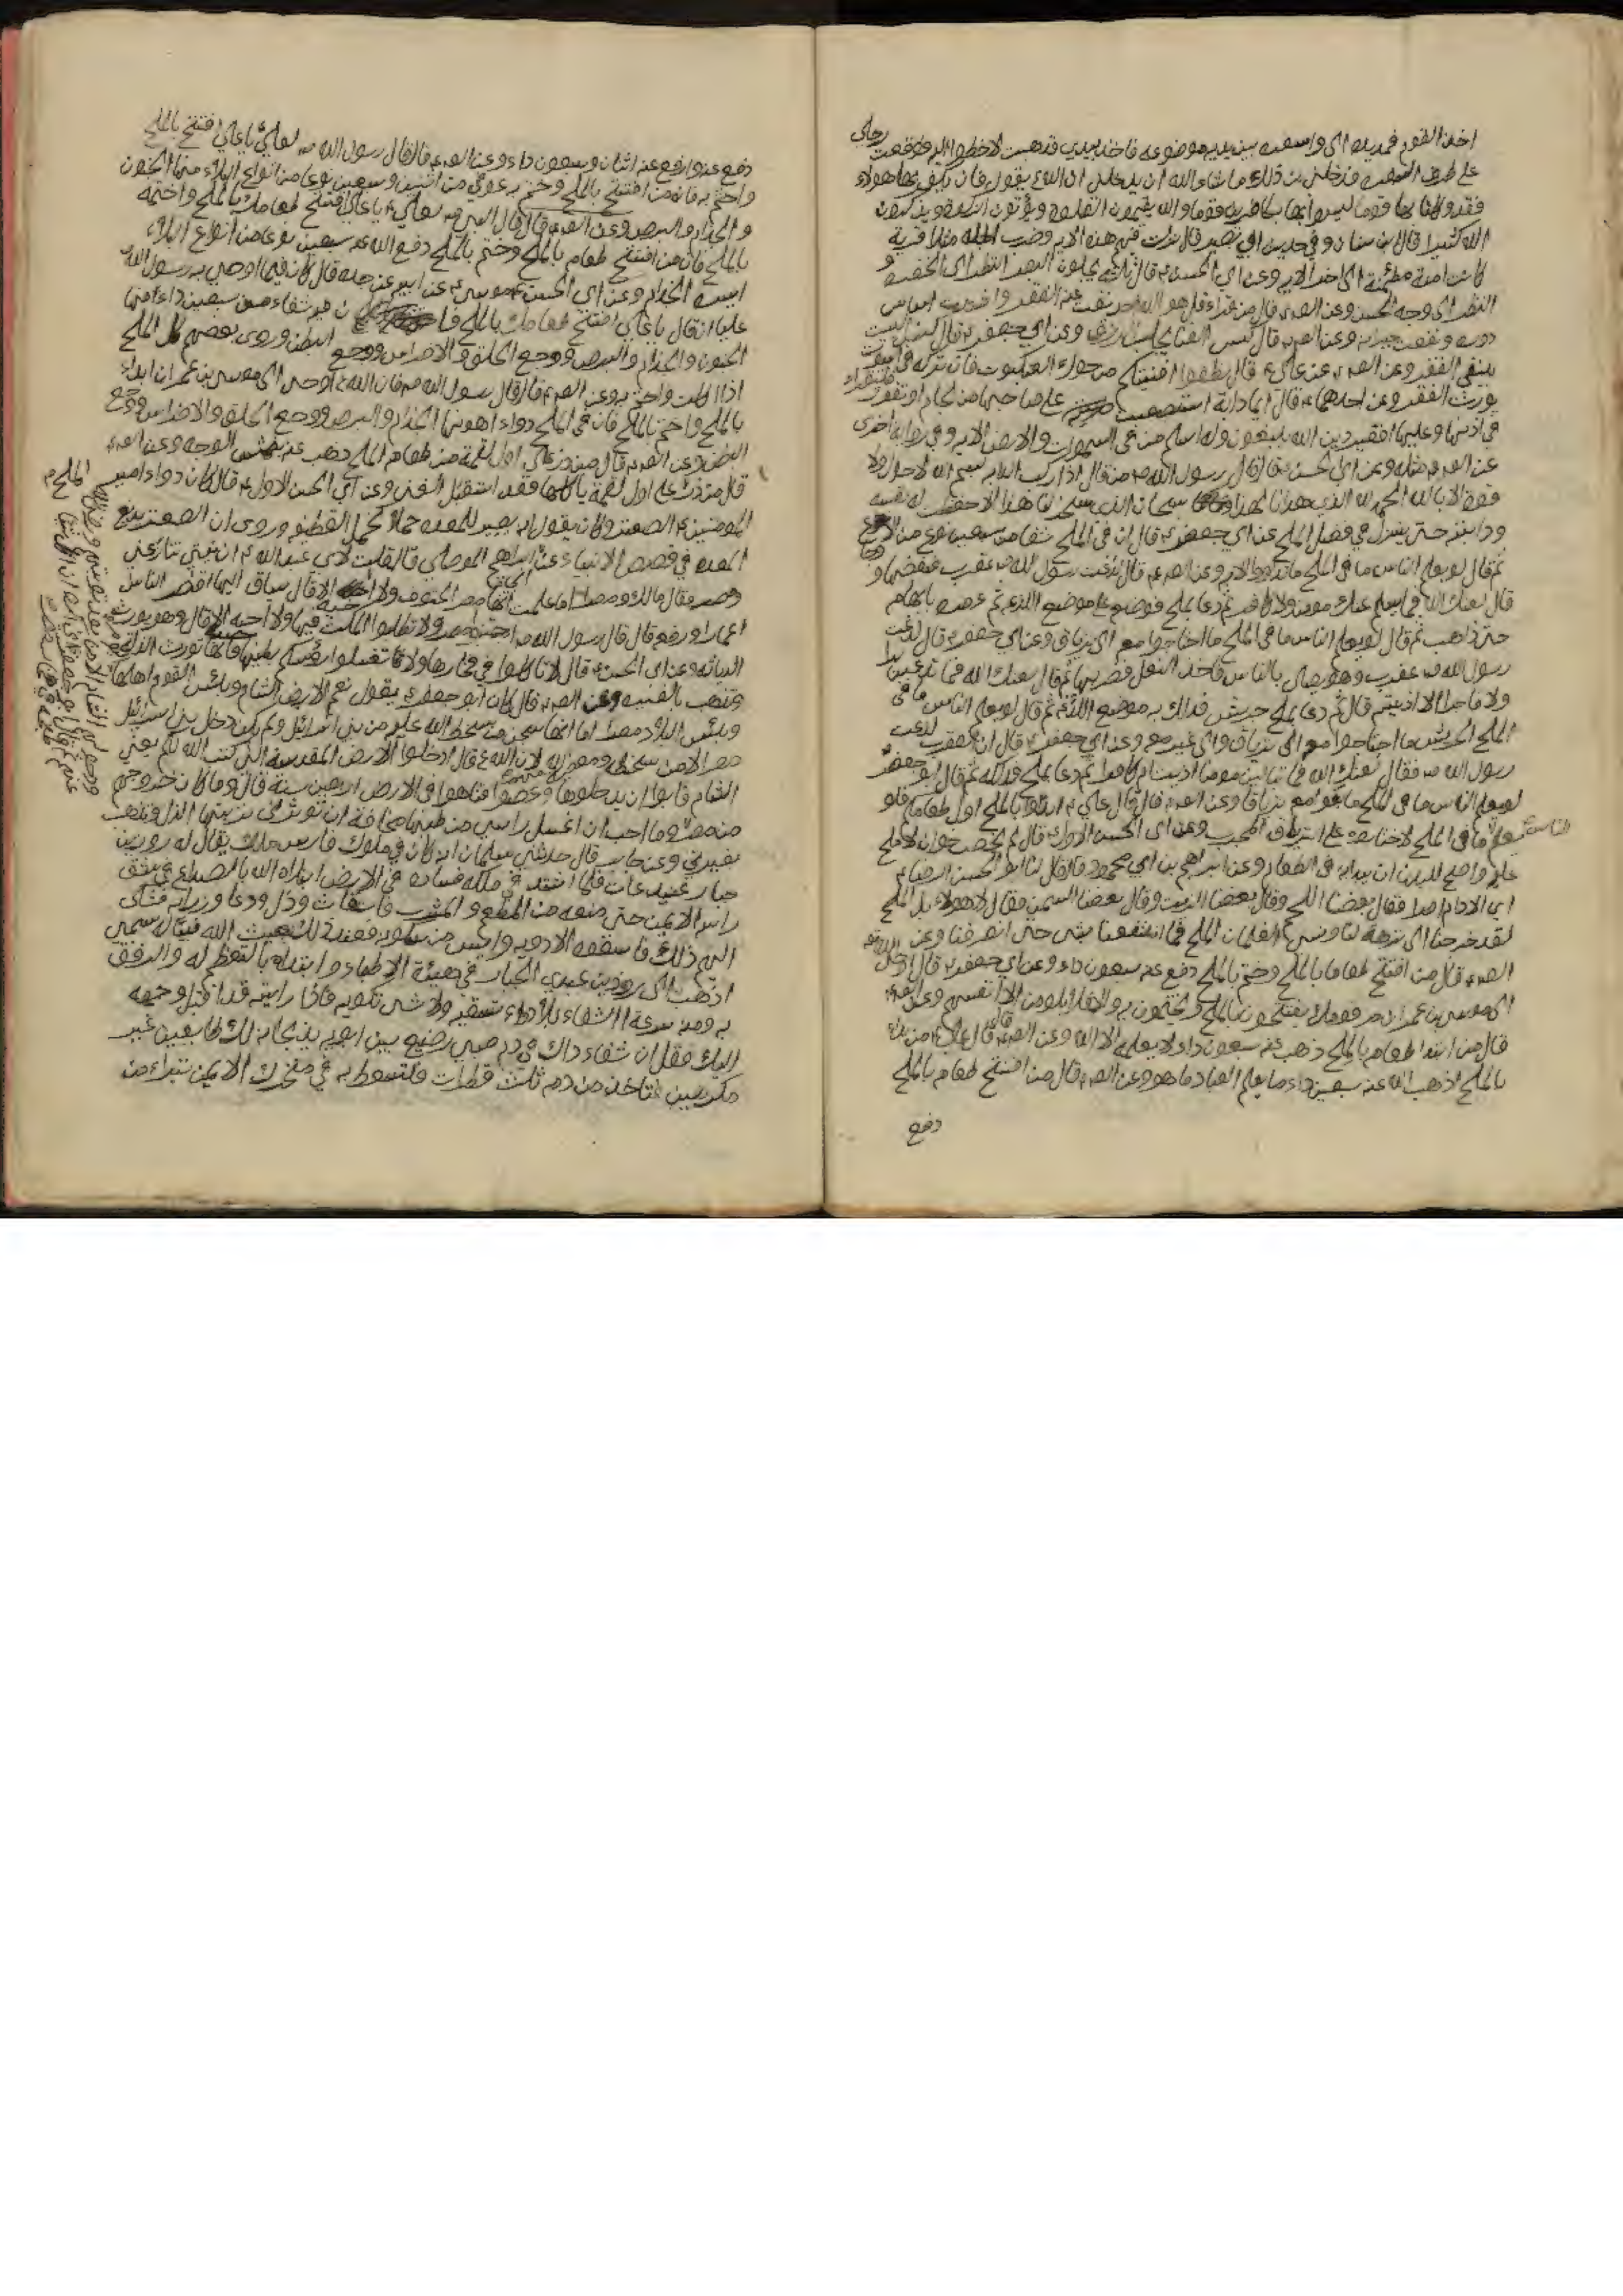 اخذ القوم فمد يده الى واسعه بين يديه موضوعه فاخذ بيدي فذهبت لاخطو اليه فوقعت رجلي
على طرف السفره فدخلني من ذلك ما شاء الله ان يدخلني ان الله يقول فان يكفر بها هولاء
فقد وكلنا بها قوما ليسوا بها بكافرين قوما والله يقيمون الصلوة ويؤتون الزكوة ويذكرون
الله كثيرا قال ابن سنان وفي حديث ابي بصير قال نزلت فيهم هذه الايه وضرب الله مثلا قرية
كانت امنة مطمئنة الى اخر الايه وعن ابي الحسن ء قال ثلثه يجلون البصر النظر الى الخضره و
النظر الى وجه الحسن وعن الصء قال من قراء قل هو الله احد نفت عنه الفقر واشتدت اساس
دوره ونفعت جيرانه وعن الصء قال كنس الفنا يجلب الرزق وعن ابي جعفر ء قال كنس البيت
ينفي الفقر وعن الصء عن علي ء قال نظفوا افنيتكم من حوك العنكبوت فان تركه في البيت
يورث الفقر وعن احدهما ء قال ايما دابة استصعبت على صاحبها من لجام او نفور فليقراء
في اذنها وعليها افغير دين الله يبغون وله اسلم من في السموات والارض الايه وفي رواية اخرى
عن الصء مثله وعن ابي الحسن ء قال قال رسول الله ص من قال اذا ركب الدابه بسم الله لا حول ولا
قوة الا بالله الحمد لله الذي هدانا لهذا سبحان الذي سخر لنا هذا الا حفظت له نفسه
ودابته حتى ينزل في فضل الملح عن ابي جعفر ء قال ان في الملح شفا من سبعين نوع من الاوجاع
ثم قال لو يعلم الناس ما في الملح ما تداووا الا به وعن الصء قال لدغت رسول الله ص عقرب فنفضها و
قال لعنك الله فما يسلم عنك مومن ولا كافر ثم دعا بملح فوضعه على موضع اللدغه ثم عصره بابهامه
حتى ذاب ثم قال لو يعلم الناس ما في الملح ما احتاجوا معه الى ترياق وعن ابي جعفر ء قال لدغت
رسول الله ص عقرب وهو يصلي بالناس فاخذ النعل فضربها ثم قال لعنك الله فما تدعين برا
ولا فاجرا الا اذيتيه قال ثم دعا بملح جريش فدلك به موضع اللدغه ثم قال لو يعلم الناس ما في
الملح الجريش ما احتاجوا معه الى ترياق والى غيره معه وعن ابي جعفر ء قال ان العقرب لدغت
رسول الله ص فقال لعنك الله فما تبالين مومنا اذيت ام كافرا ثم دعا بملح فدلكه ثم قال ابو جعفر
لو يعلم الناس ما في الملح ما بغوا معه ترياقا وعن الصء قال قال علي ء ابدؤا بالملح اول طعامكم فلو
يعلم الناس ما في الملح لاختاروه على الترياق المجرب وعن ابي الحسن الاول ء قال لم يخصب خوان لا ملح
عليه واصح للبدن ان يبداء به في الطعام وعن ابراهيم بن ابي محمود قال قال لنا ابو الحسن الرضا ء
اي الادام امرا فقال بعضنا اللحم وقال بعضنا الزيت وقال بعضنا السمن فقال لا هو لا بل الملح
لقد خرجنا الى نزهة لنا ونسي الغلمان الملح فما انتفعنا بشي حتى انصرفنا وعن
الصء قال من افتتح طعاما بالملح وختم بالملح دفع عنه سبعون داء وعن ابي جعفر ء قال اوحى الله تع
الى موسى بن عمران مر قومك يفتتحون بالملح ويختمون به والا فلا يلومن الا انفسهم وعن الصء
قال من ابتدا طعامه بالملح ذهب عنه سبعون داء لا يعلمه الا الله وعن الصء قال قال علي ء من بدء
بالملح اذهب الله عنه سبعين داء ما يعلم العباد ما هو وعن الصء قال من افتتح طعامه بالملح
دفع
دفع عنه او رفع عنه اثنان وسبعون داء وعن الصء قال قال رسول الله ص لعلي يا علي افتتح بالملح
واختم به فانه من افتتح بالملح وختم به عوفي من اثنين وسبعين نوعا من انواع البلاء منها الجنون
والجذام والبرص وعن الصء قال قال النبي ص لعلي ء يا علي افتتح طعامك بالملح واختمه
بالملح فان من افتتح طعامه بالملح وختم بالملح دفع الله عنه سبعين نوعا من انواع البلاء
ايسره الجذام وعن ابي الحسن موسى ء عن ابيه عن جده قال كان فيما اوصى به رسول الله
عليا ان قال يا علي افتتح طعامك بالملح فان فيه شفاء من سبعين داء منها
الجنون والجذام والبرص ووجع الحلق والاضراس ووجع البطن وروى بعضهم كل الملح
اذا اكلت واختم به وعن الصء قال قال رسول الله ص فان الله ء اوحى الى موسى بن عمران ابداء
بالملح واختم بالملح فان في الملح دواء اهونها الجذام والبرص ووجع الحلق والاضراس ووجع
البطن وعن الصء قال من ذر على اول لقمة من طعامه الملح ذهب عنه بنمش الوجه وعن الصء
قال من ذر الملح على اول لقمة ياكلها فقد استقبل الغنى وعن ابي الحسن الاول ء قال كان دواء امير
المومنين ء الصعتر وكان يقول انه يصير للمعده خملا كخمل القطيفه وروى ان الصعتر يدبغ
المعده في قصص الانبياء عن ابراهيم الموصلي قال قلت لابي عبد الله ء ان نفسي تنازعني
مصر فقال مالك ومصر اما علمت انها مصر الحتوف ولا احسبه الا قال يساق اليها اقصر الناس
اعمارا ورفعه قال قال رسول الله ص انتحوا مصر ولا تطلبوا المكث فيها ولا احسبه الا قال وهو يورث
الدياثه وعن ابي الحسن ء قال لا تاكلوا في فخارها ولا تغسلوا رؤسكم بطينها فانها تورث الذله
وتذهب بالغيره وعن الصء قال كان ابو جعفر ء يقول نعم الارض الشام وبئس القوم اهلها
وبئس البلاد مصر اما انها سجن من سخط الله عليه من بني اسرائيل ولم يكن دخل بني اسرائيل
مصر الا من سخطه ومعصيته لله لان الله ء قال ادخلوا الارض المقدسة التي كتب الله لكم يعني
الشام فابوا ان يدخلوها وعصوا فتاهوا في الارض اربعين سنة قال وما كان خروجهم
من مصر وما احب ان اغسل راسي من طينها مخافة ان تورثني تربتها الذل وتذهب
بغيرتي وعن جابر قال حدثني سلمان انه كان في ملوك فارس ملك يقال له روذين
جبار عنيد عات فلما اشتد في ملكه فساده في الارض ابتلاه الله بالصداع في شق
راسه الايمن حتى منعه من المطعم والمشرب فاستغاث وذل ودعا وزراءه فشكى
اليهم ذلك فاسقوه الادويه وايس من سكونه فعند ذلك بعث الله نبيا له سمى
اذهب الى روذين عبدي الجبار في هيئة الاطباء وابتداه بالتعظيم له والرفق
به ومنه سرعة الشفاء بلا دواء تسقيه ولا شي تكويه فاذا رايته قد اقبل وجهه
اليك فقل ان شفاء داك في دم صبي رضيع بين ابويه يذبحانه لك طايعين غير
مكرهين فتاخذ من دمه ثلث قطرات فتسعط به في منخرك الايمن تبراء من